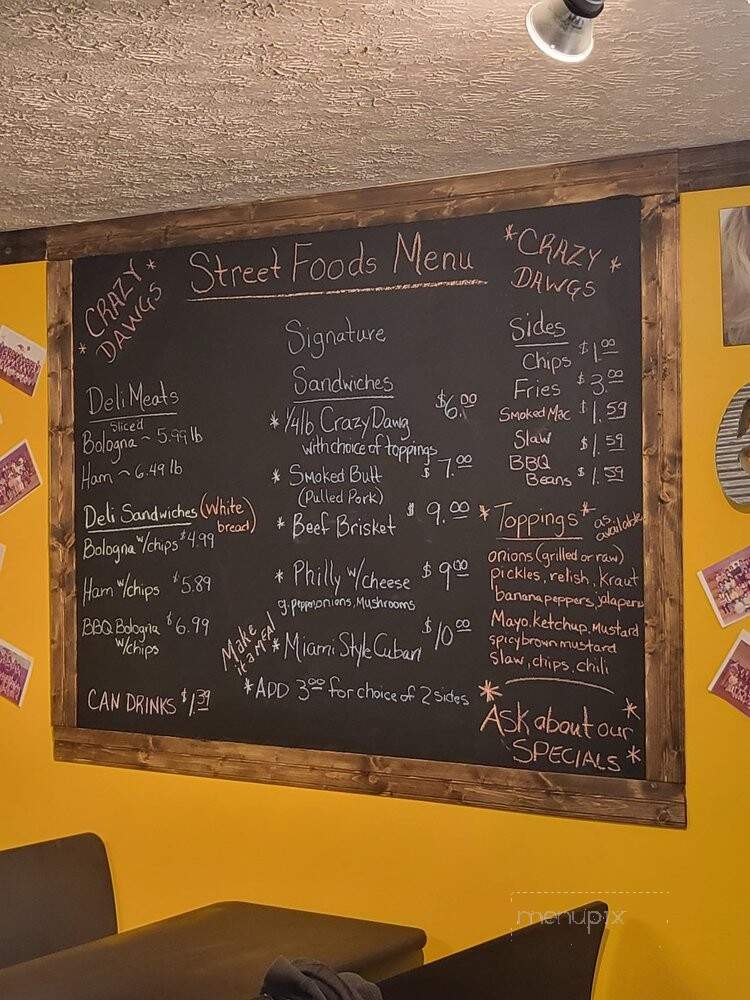 Street Foods Menu
* CRAZY *
DAWGS
* CRAZY *
DAWGS
Deli Meats
Sliced
Bologna ~ 5.99 lb
Ham ~ 6.49 lb
Deli Sandwiches (White bread)
Bologna w/chips $4.99
Ham w/chips $5.89
BBQ Bologna $6.99
w/chips
CAN DRINKS $1.39
Signature
Sandwiches
* 1/4 lb Crazy Dawg $6.00
with choice of toppings
* Smoked Butt $7.00
(Pulled Pork)
* Beef Brisket $9.00
* Philly w/cheese $9.00
g. peppers, onions, Mushrooms
* Miami Style Cuban $10.00
Make it a MEAL
* ADD 3.00 for choice of 2 sides
Sides
Chips $1.00
Fries $3.00
Smoked Mac $1.59
Slaw $1.59
BBQ
Beans $1.59
* Toppings * as available
onions (grilled or raw)
pickles, relish, kraut
banana peppers, jalapeno
Mayo, ketchup, Mustard
spicy brown mustard
slaw, chips, chili
* Ask about our *
SPECIALS *
menupix